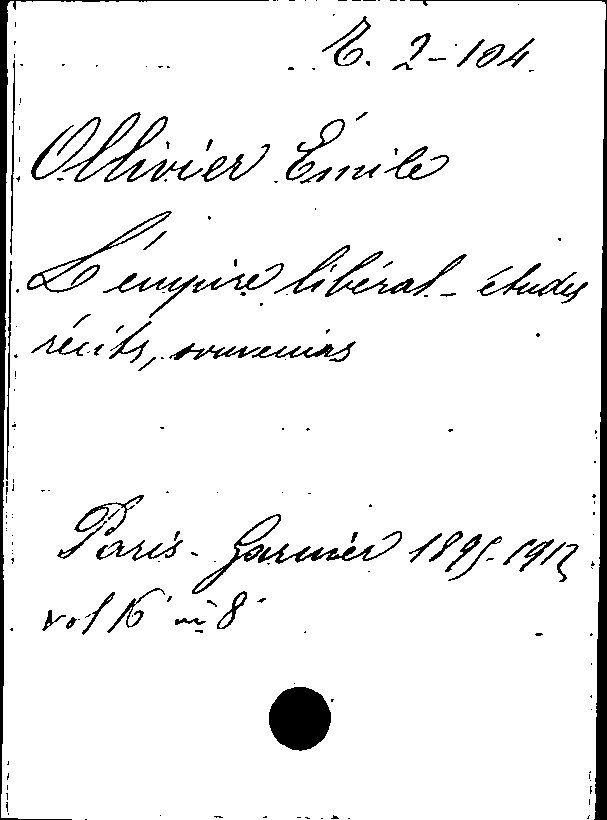 E. 2-104
Ollivier Émile
L'empire libéral - études
récits, souvenirs
Paris - Garnier 1895-1912
vol 16 in 8°